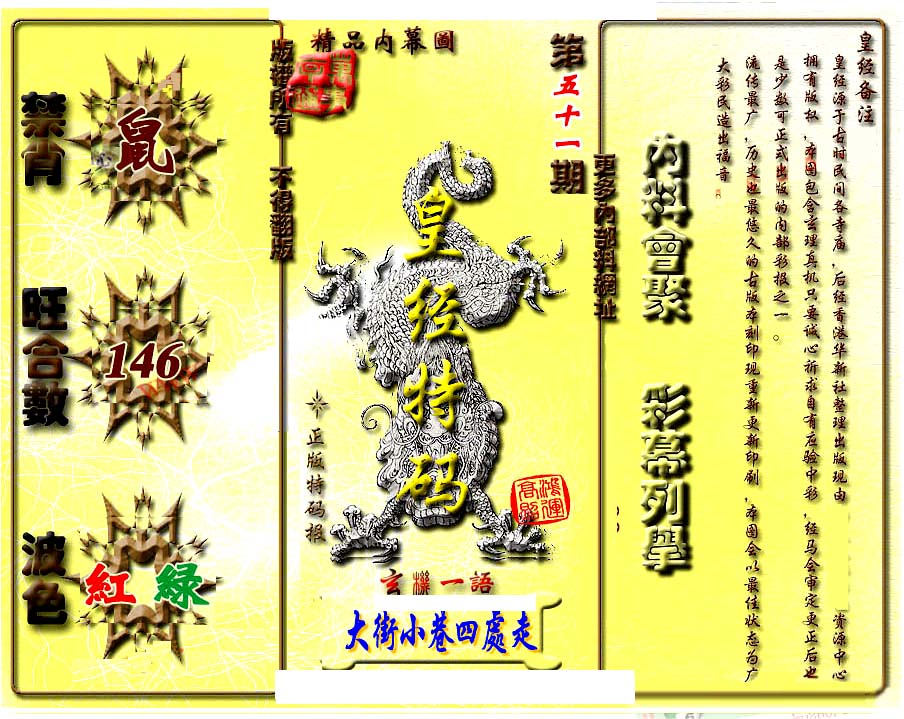 精品内幕圖
版權所有 不得翻版
第五十一期
更多內部料網址
禁肖
鼠
旺合數
146
波色
紅 綠
皇经特码
正版特码报
鴻運高照
玄機一語
大街小巷四處走
內料會聚
彩幕列舉
皇经备注
皇经源于古时民间各寺庙，后经香港华新社整理出版现由 资源中心
拥有版权，本图包含玄理真机只要诚心祈求自有应验中彩，经马会审定更正后也
是少数可正式出版的内部彩报之一。
流传最广，历史也最悠久的古版本刻印现重新更新印刷，本图会以最佳状态为广
大彩民造出福音